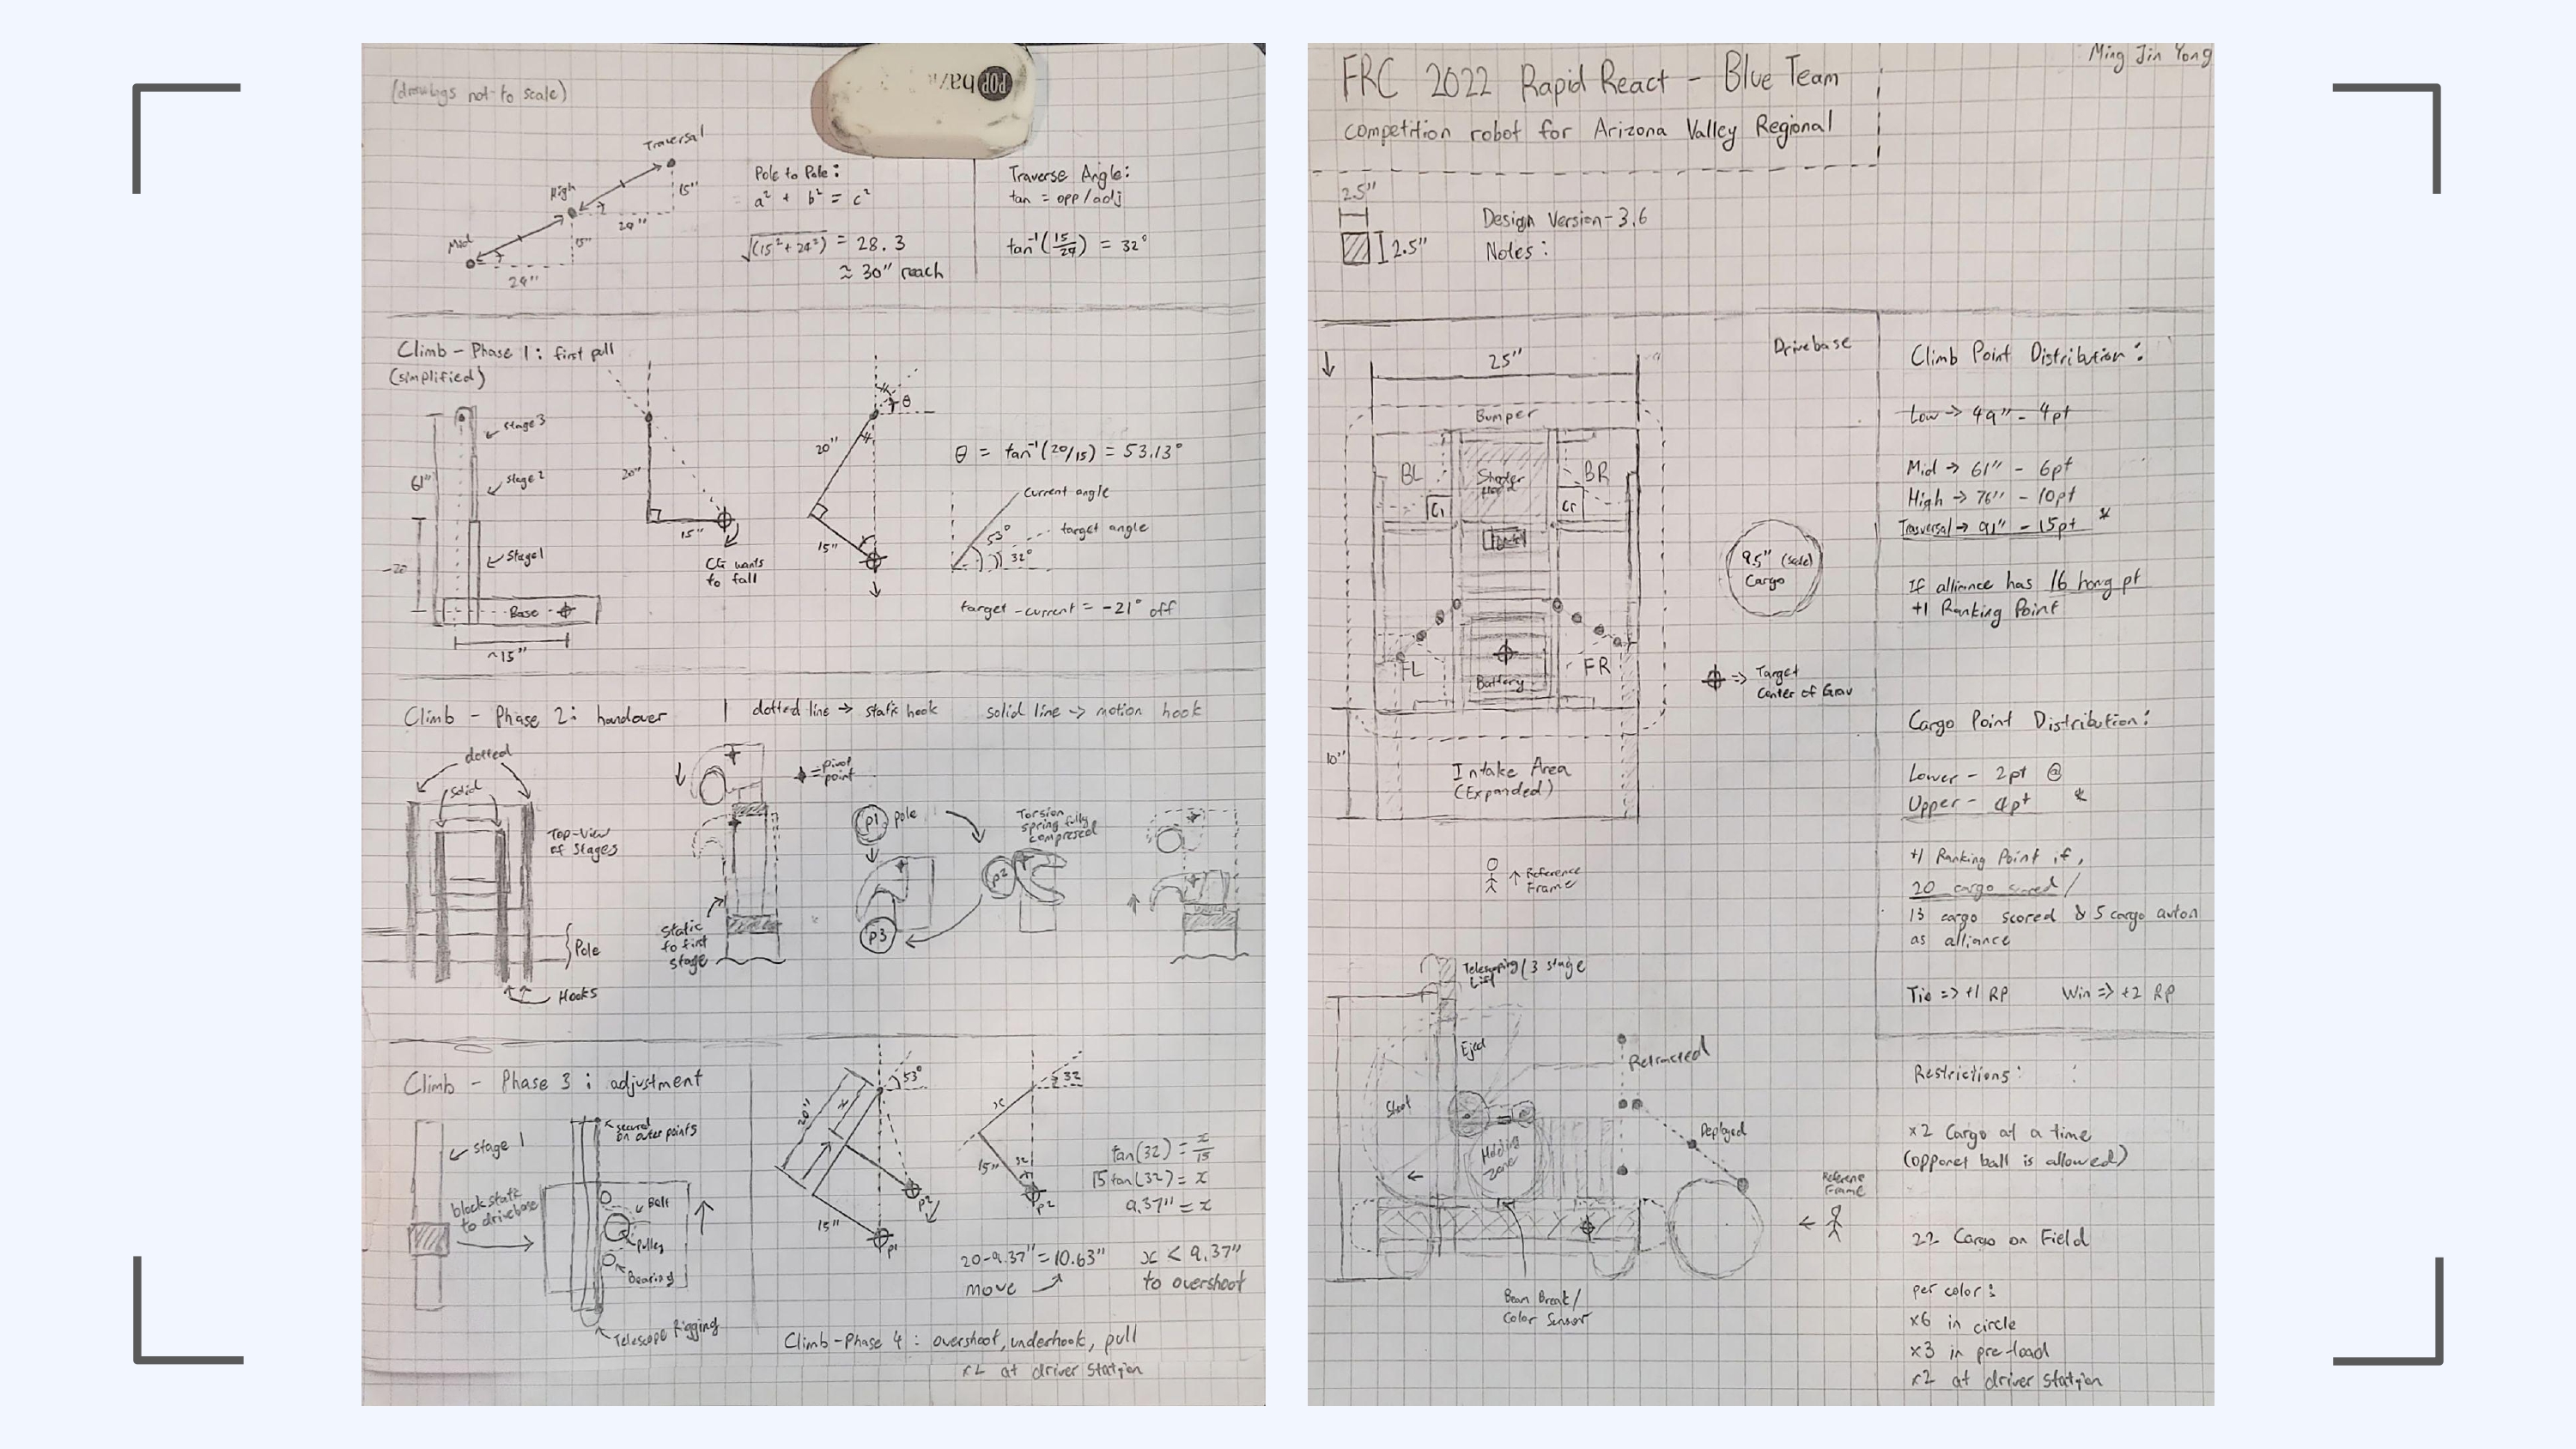 (drawings not to scale)
Traversal
High
15"
24"
Mid
15"
24"
Pole to Pole:
a² + b² = c²
√(15²+24²) = 28.3
≈ 30" reach
Traverse Angle:
tan = opp/adj
tan⁻¹(15/24) = 32°
POP
Climb - Phase 1: first pull
(simplified)
stage 3
61"
stage 2
Stage 1
~20
Base
~15"
20"
15"
CG wants
to fall
θ
20"
15"
θ = tan⁻¹(20/15) = 53.13°
current angle
target angle
53°
32°
target - current = -21° off
Climb - Phase 2: handover | dotted line -> static hook solid line -> motion hook
dotted
solid
Top-View
of Stages
Pole
Hooks
= pivot
point
Static
to first
stage
P1
pole
P2
P3
Torsion
spring fully
compressed
Climb - Phase 3: adjustment
stage 1
block static
to drivebase
secured
on outer points
Belt
Pulley
Bearing
Telescope Rigging
53°
20"
x
15"
P2
P1
32
x
15"
32
P2
tan(32) = x/15
15tan(32) = x
9.37" = x
20-9.37" = 10.63"
move
x < 9.37"
to overshoot
Climb-Phase 4: overshoot, underhook, pull
x2 at driver station
Ming Jin Yong
FRC 2022 Rapid React - Blue Team
competition robot for Arizona Valley Regional
2.5"
2.5"
Design Version-3.6
Notes:
25"
Drivebase
Bumper
BL
Shooter
BR
Cl
Cr
9.5" (scale)
Cargo
FL
FR
Battery
=> Target
Center of Grav
10"
Intake Area
(Expanded)
Reference
Frame
Climb Point Distribution:
Low -> 49" - 4pt
Mid -> 61" - 6pt
High -> 76" - 10pt
Trasversal -> 91" - 15pt *
If alliance has 16 hang pt
+1 Ranking Point
Cargo Point Distribution:
Lower - 2pt @
Upper - 4pt *
+1 Ranking Point if,
20 cargo scored /
13 cargo scored & 5 cargo auton
as alliance
Tie => +1 RP Win => +2 RP
Telescoping / 3 stage
Lift
Eject
Retracted
Shoot
Holding
Zone
Deployed
Reference
Frame
Beam Break/
Color Sensor
Restrictions:
x2 Cargo at a time
(opponet ball is allowed)
22 Cargo on Field
per color:
x6 in circle
x3 in pre-load
x2 at driver station